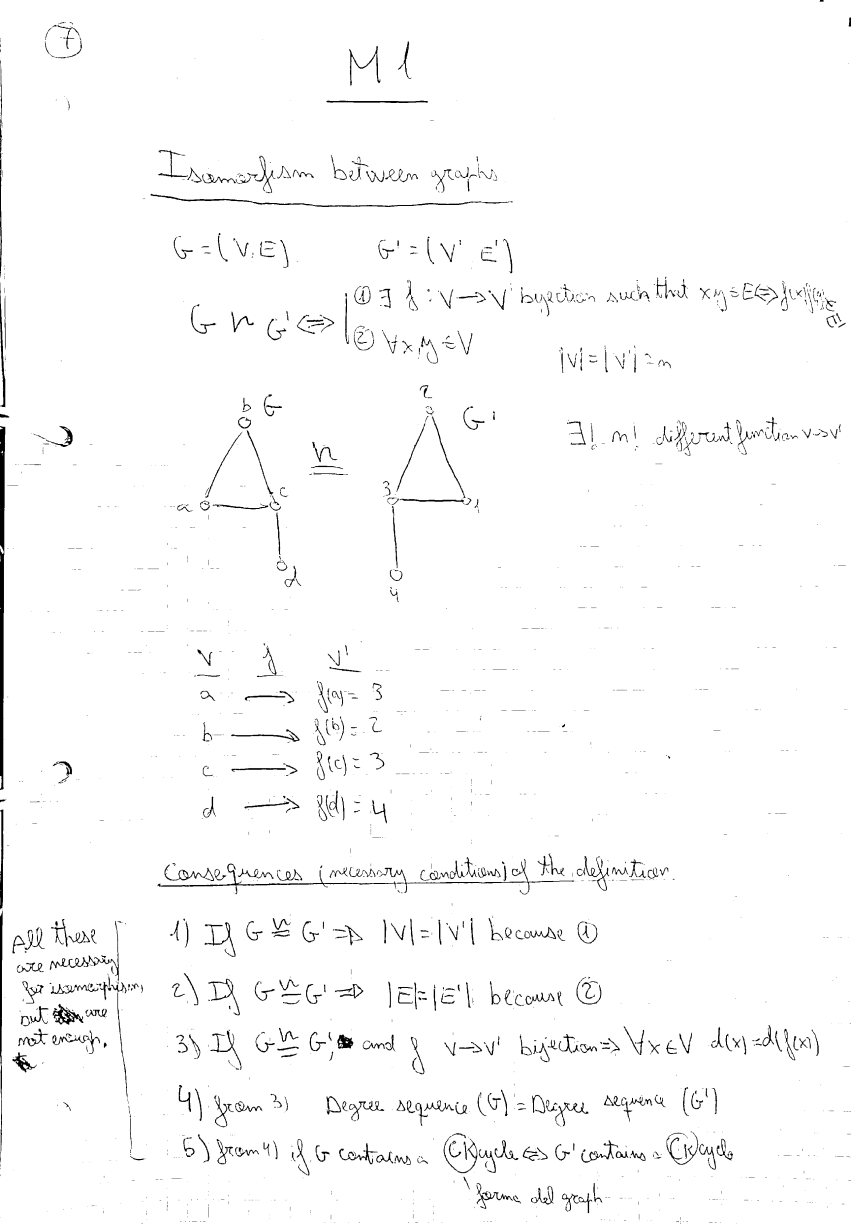 7
M1
Isomorfism between graphs
G = (V, E) G' = (V' E')
G ≅ G' ⇔ ① ∃ f : V → V' bijection such that xy ∈ E ⇔ f(x)f(y) ∈ E'
② ∀x,y ∈ V
|V| = |V'| = n
∃! n! different function V → V'
b G
2 G'
≅
a c
3 1
d
4
V f V'
a → f(a) = 3
b → f(b) = 2
c → f(c) = 3
d → f(d) = 4
Consequences (necessary conditions) of the definition
All these
are necessary
for isomorphism,
but are
not enough.
1) If G ≅ G' ⇒ |V| = |V'| because ①
2) If G ≅ G' ⇒ |E| = |E'| because ②
3) If G ≅ G', and f V → V' bijection ⇒ ∀x ∈ V d(x) = d(f(x))
4) from 3) Degree sequence (G) = Degree sequence (G')
5) from 4) if G contains a CK cycle ⇔ G' contains a CK cycle
forma del graph